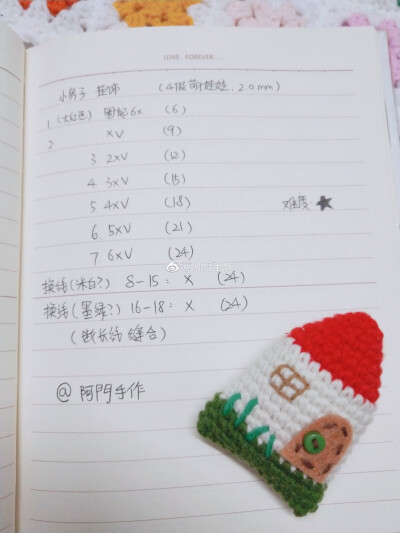 LOVE FOREVER
小房子 挂饰 (4股萌娃娃, 2.0mm)
1 (大红色) 圈起6x (6)
2 xV (9)
3 2xV (12)
4 3xV (15)
5 4xV (18)
难度 ★
6 5xV (21)
7 6xV (24)
换线(米白?) 8-15: X (24)
换线(墨绿?) 16-18: X (24)
(断长线 缝合)
@ 阿門手作